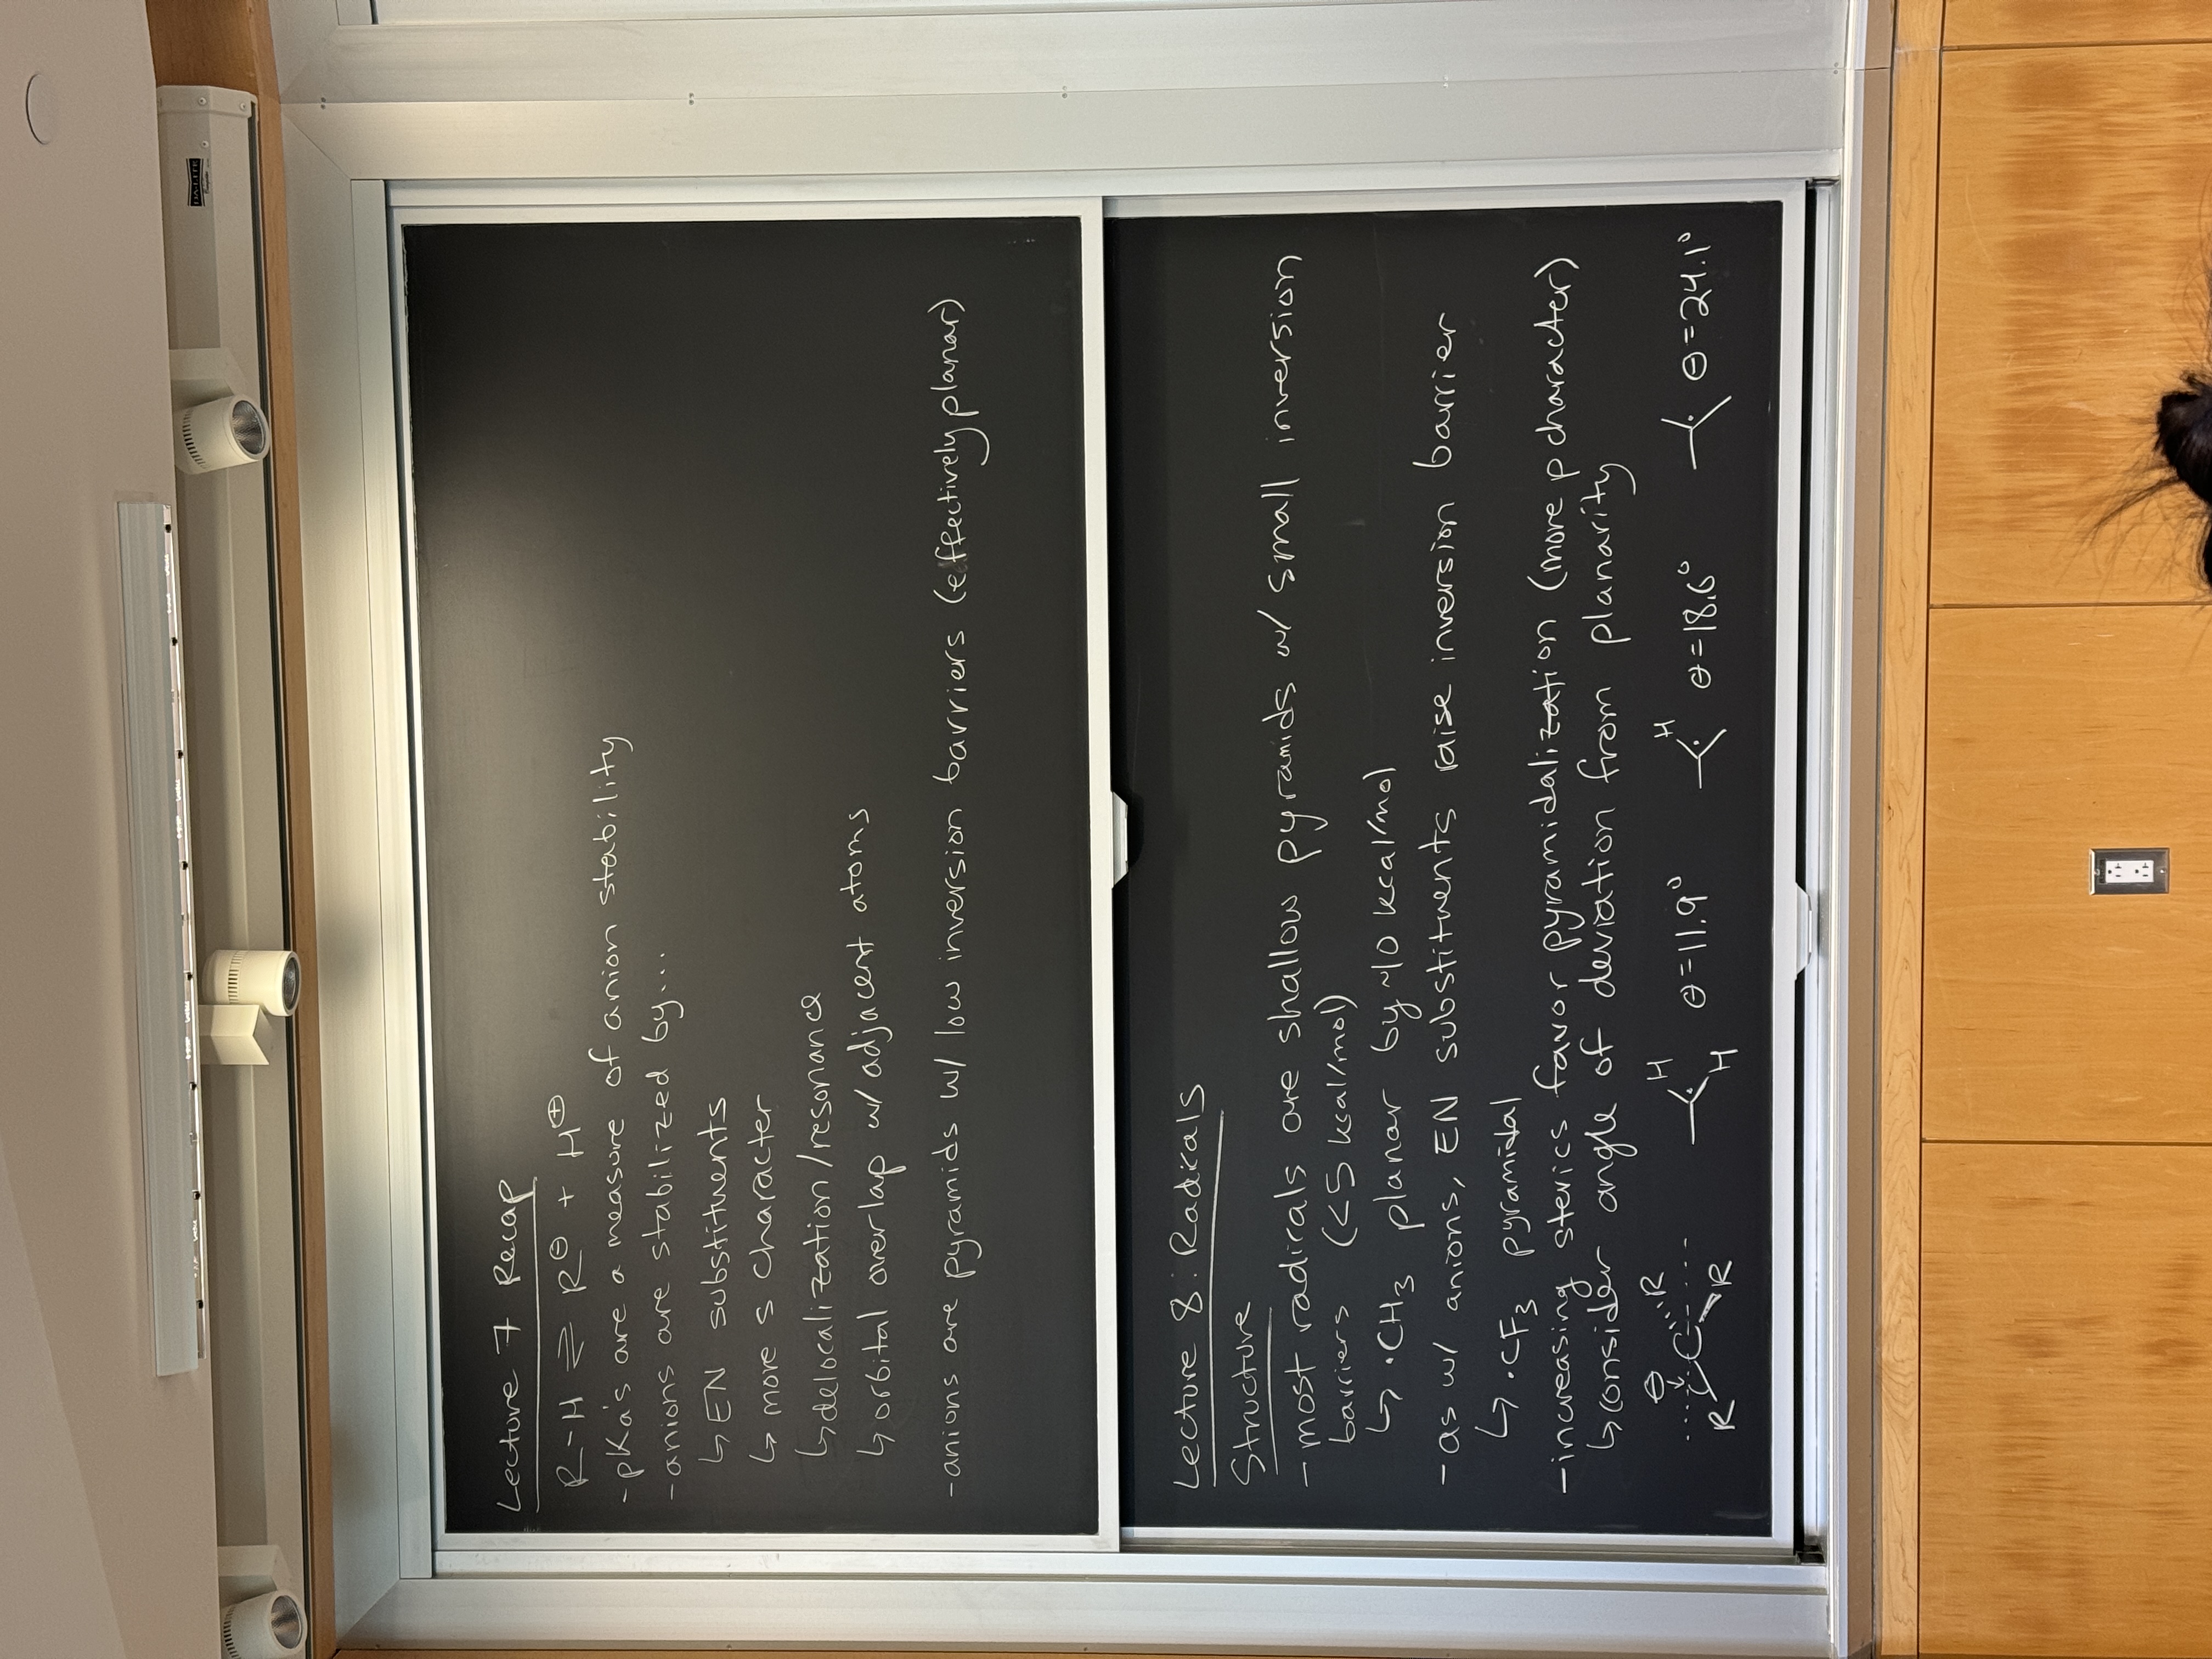 DA-LITE
Lecture 7 Recap
R-H ⇌ R⊖ + H⊕
-pKa's are a measure of anion stability
-anions are stabilized by...
↳ EN substituents
↳ more s character
↳ delocalization/resonance
↳ orbital overlap w/ adjacent atoms
-anions are pyramids w/ low inversion barriers (effectively planar)
Lecture 8: Radicals
Structure
- most radicals are shallow pyramids w/ small inversion
barriers (<5 kcal/mol)
↳ ·CH₃ planar by ~10 kcal/mol
- as w/ anions, EN substituents raise inversion barrier
↳ ·CF₃ pyramidal
-increasing sterics favor pyramidalization (more p character)
↳ consider angle of deviation from planarity
θ C R R R H H θ=11.9° H θ=18.6° θ=24.1°